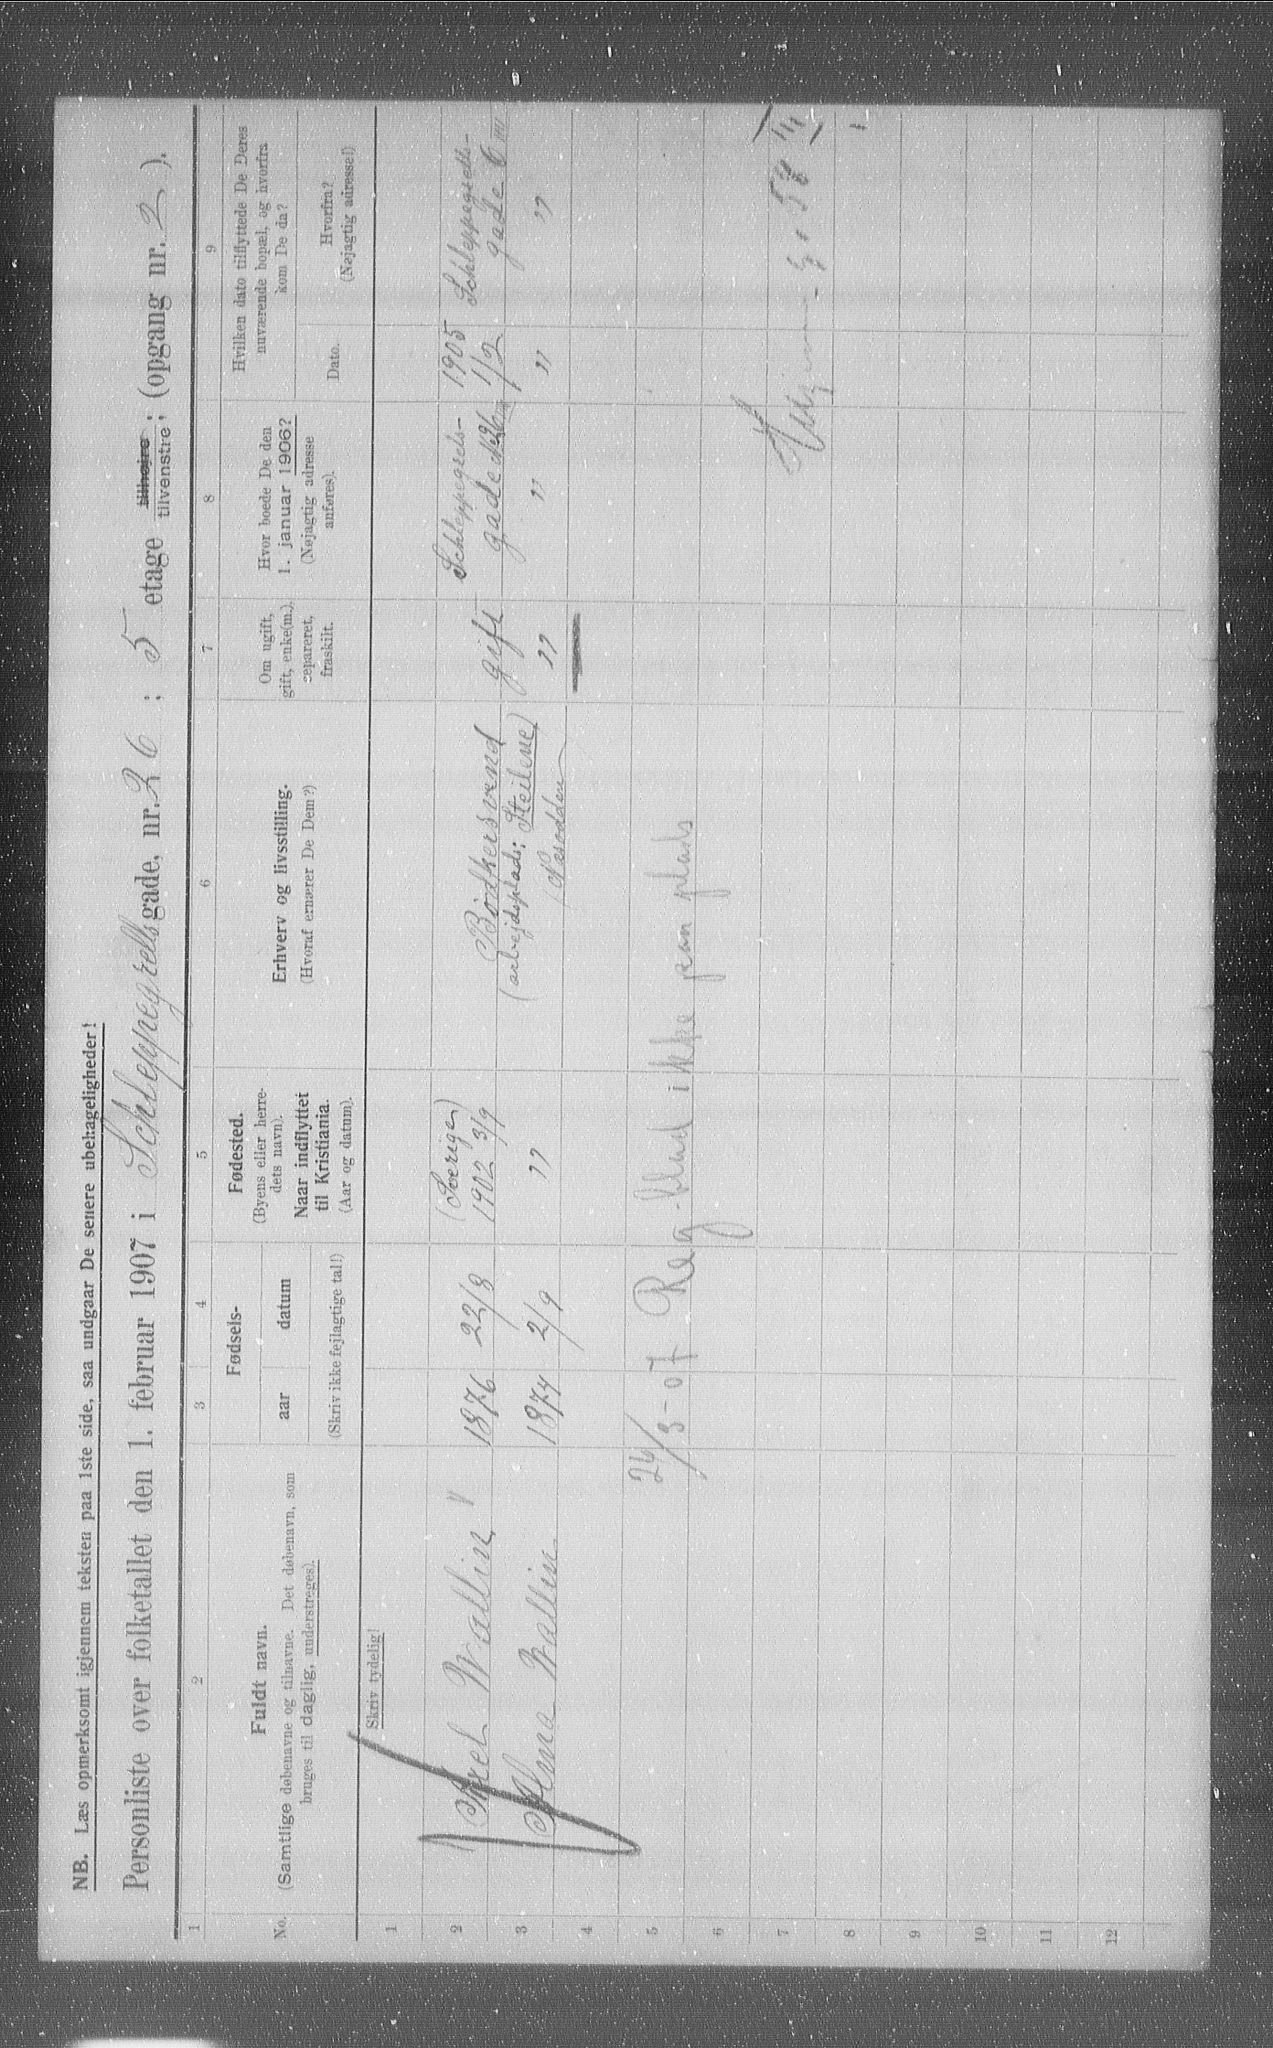 NB. Læs opmerksomt igjennem teksten paa 1ste side, saa undgaar De senere ubehageligheder!
Personliste over folketallet den 1. februar 1907 i Schleppegrellsgade, nr. 26 ; 5 etage tilhøire tilvenstre ; (opgang nr. 2 ).
1 2 3 4 5 6 7 8 9
No.
Fuldt navn.
(Samtlige døbenavne og tilnavne. Det døbenavn, som
bruges til daglig, understreges).
Fødsels-
aar datum
(Skriv ikke fejlagtige tal!)
Fødested.
(Byens eller herre-
dets navn).
Naar indflyttet
til Kristiania.
(Aar og datum).
Erhverv og livsstilling.
(Hvoraf ernærer De Dem?)
Om ugift,
gift, enke(m.),
separeret,
fraskilt.
Hvor boede De den
1. januar 1906?
(Nøjagtig adresse
anføres).
Hvilken dato tilflyttede De Deres
nuværende bopæl, og hvorfra
kom De da?
Dato.
Hvorfra?
(Nøjagtig adresse!)
Skriv tydelig!
1
2 Axel Wallin 1876 22/8 (Sverige) 1902 3/9 Bödkersvend gift Schleppegrels-gade 26 1905 1/2 Schleppegrells-gade 6
(arbejdsplads: Steilene)
3 Alma Wallin 1874 2/9 " " " " "
(Næsodden)
4
5 26/3-07 Reg.blad ikke paa plads
6
7
8
9
10
11
12